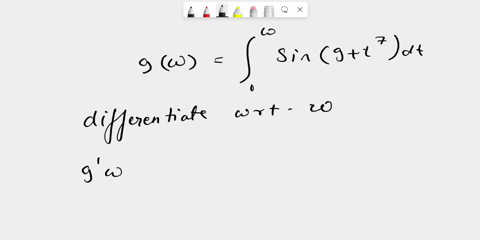 g(ω) = ∫₀^ω sin(g+t⁷)dt
differentiate wrt. ω
g'ω